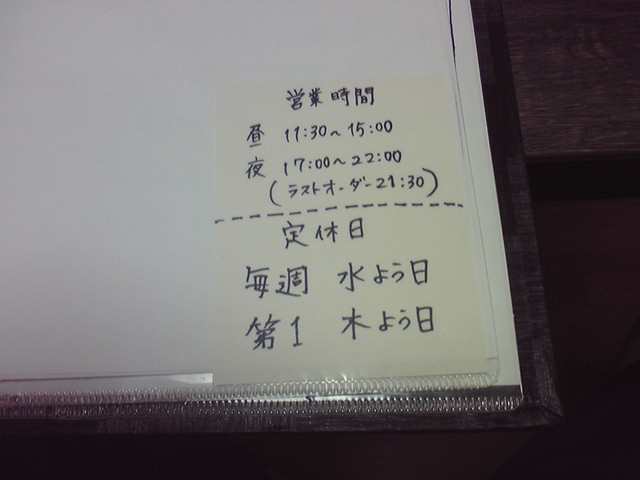 営業時間
昼 11:30~15:00
夜 17:00~22:00
(ラストオーダー21:30)
定休日
毎週 水よう日
第1 木よう日